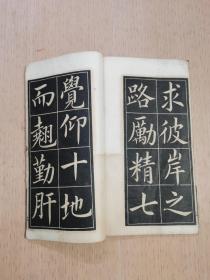 求彼岸之
路勵精七
覺仰十地
而翹勤肝